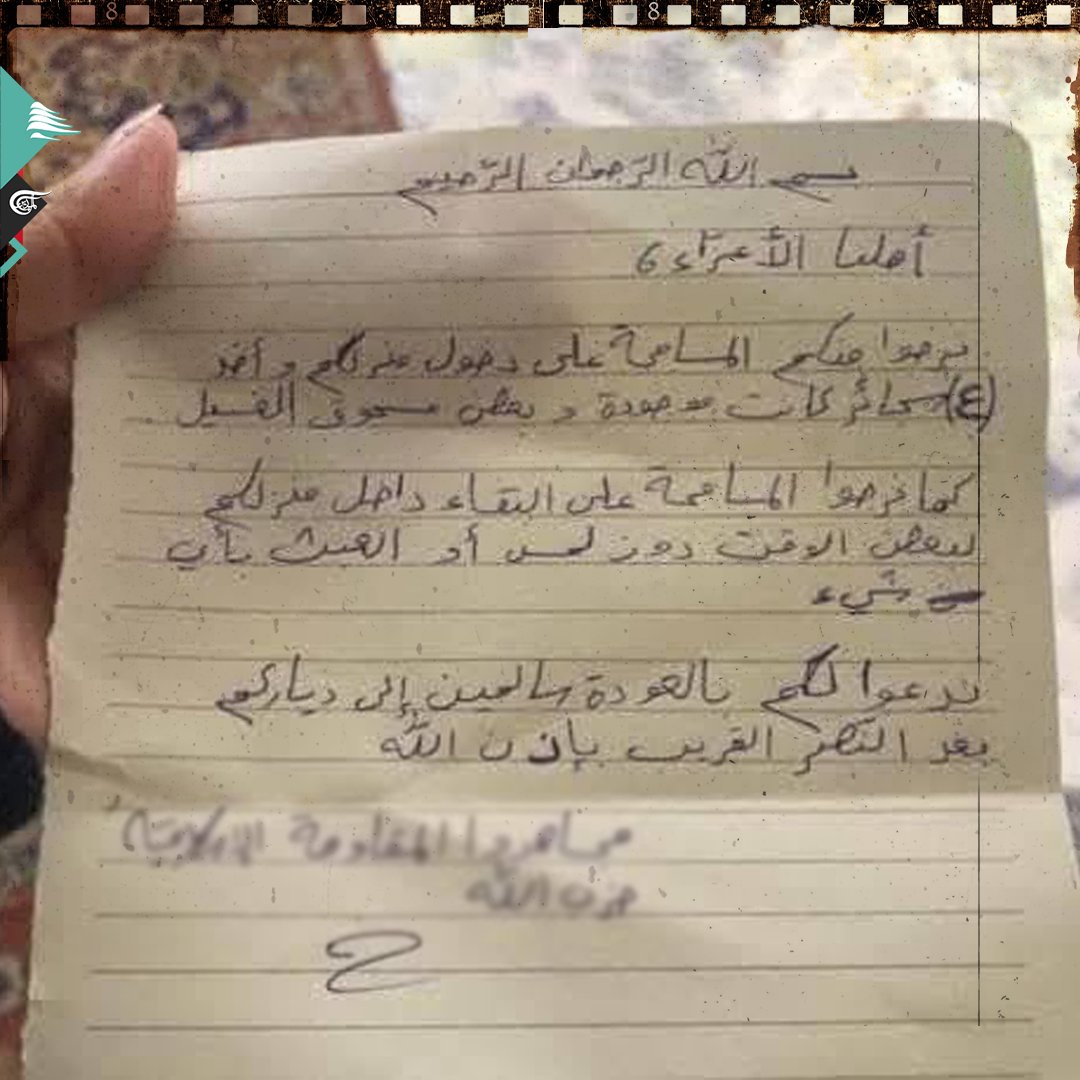 8
8
بسم الله الرّحمان الرّحيم
أهلنا الأعزّاء،
نرجوا منكم المسامحة على دخول منزلكم وأخذ
(٤) سجائر كانت موجودة وبعض مسحوق الغسيل
كما نرجوا المسامحة على البقاء داخل منزلكم
لبعض الوقت دون لمس أو العبث بأي
شيء
ندعوا لكم بالعودة سالمين إلى دياركم
بعد النصر القريب بإذن الله
مجاهدوا المقاومة الإسلامية
حزب الله